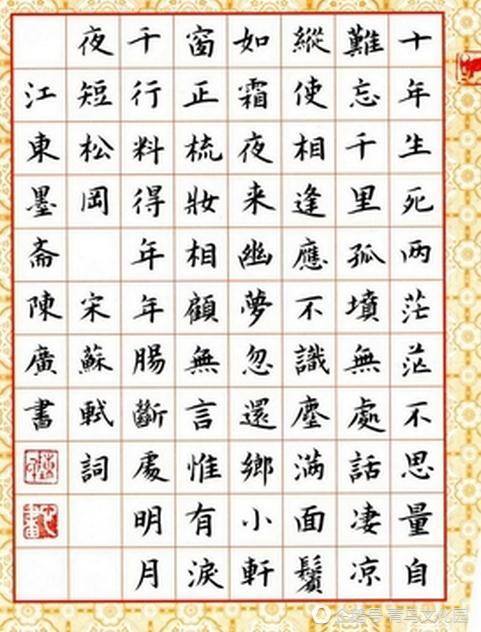 十年生死两茫茫不思量自
難忘千里孤墳無處話凄涼
縱使相逢應不識塵滿面鬢
如霜夜来幽夢忽還鄉小軒
窗正梳妝相顧無言惟有淚
千行料得年年腸斷處明月
夜短松岡 宋蘇軾詞
江東墨斋陳廣書